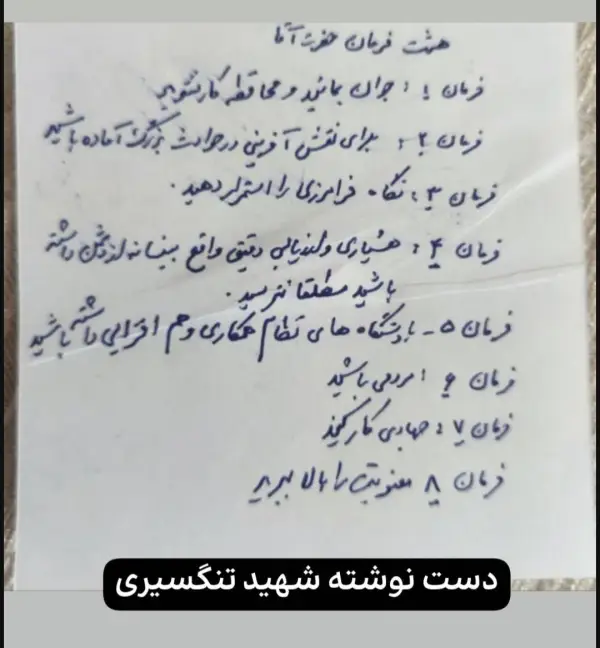 هشت فرمان حضرت آقا
فرمان ۱ : جوان بمانید و محافظه کار نشوید
فرمان ۲ : برای نقش آفرینی در حوادث بزرگ آماده باشید
فرمان ۳ : نگاه فرامرزی را استمرار دهید .
فرمان ۴ : هشیاری و ارزیابی دقیق واقع بینانه از دشمن داشته
باشید مطلقا نترسید .
فرمان ۵ - با دستگاه های نظام همکاری و هم افزایی داشته باشید
فرمان ۶ : مردمی باشید
فرمان ۷ : جهادی کار کنید
فرمان ۸ معنویت را بالا ببرید
دست نوشته شهید تنگسیری